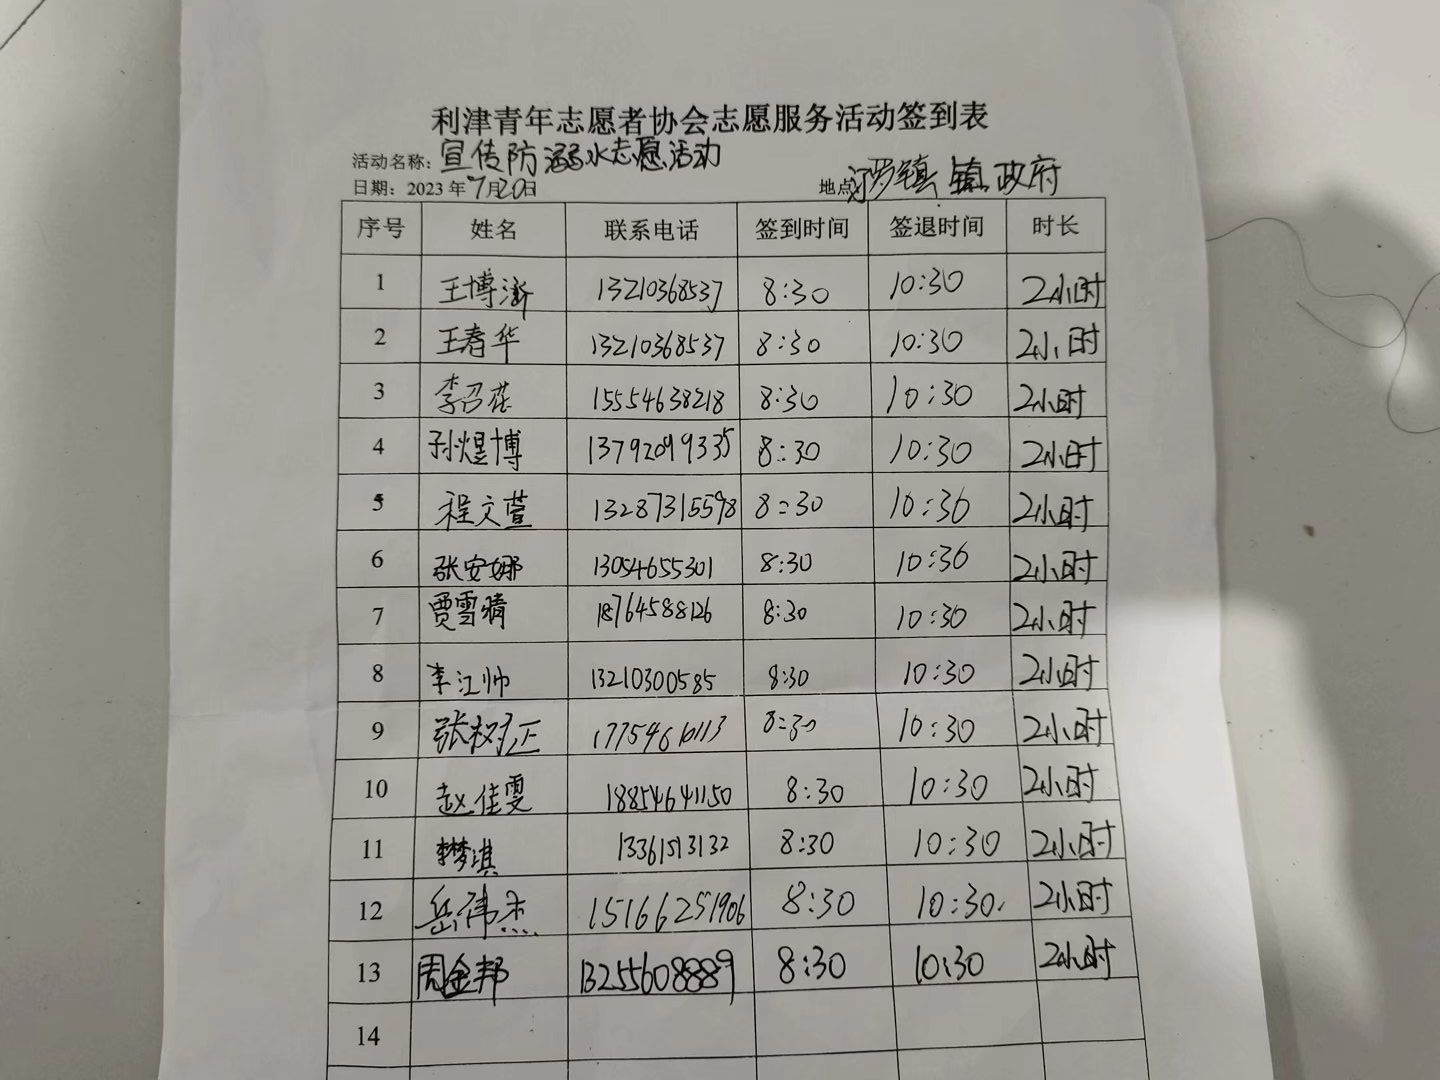 利津青年志愿者协会志愿服务活动签到表
活动名称：宣传防溺水志愿活动
日期：2023年7月20日 地点 汀罗镇 镇政府
序号 姓名 联系电话 签到时间 签退时间 时长
1 王博浙 13210368537 8:30 10:30 2小时
2 王春华 13210368537 8:30 10:30 2小时
3 李召花 15554638218 8:30 10:30 2小时
4 孙煜博 13792099335 8:30 10:30 2小时
5 程文萱 13287315598 8:30 10:30 2小时
6 张安娜 13054655301 8:30 10:30 2小时
7 贾雪晴 18764588126 8:30 10:30 2小时
8 李江帅 13210300585 8:30 10:30 2小时
9 张树正 17754610113 8:30 10:30 2小时
10 赵佳雯 18854641150 8:30 10:30 2小时
11 淇 13361513132 8:30 10:30 2小时
12 岳伟杰 15166251906 8:30 10:30. 2小时
13 周金邦 13255608889 8:30 10:30 2小时
14